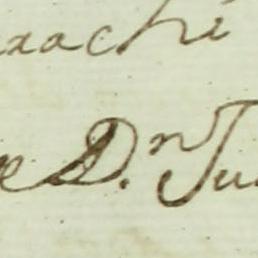 xachi
e D.n Ju